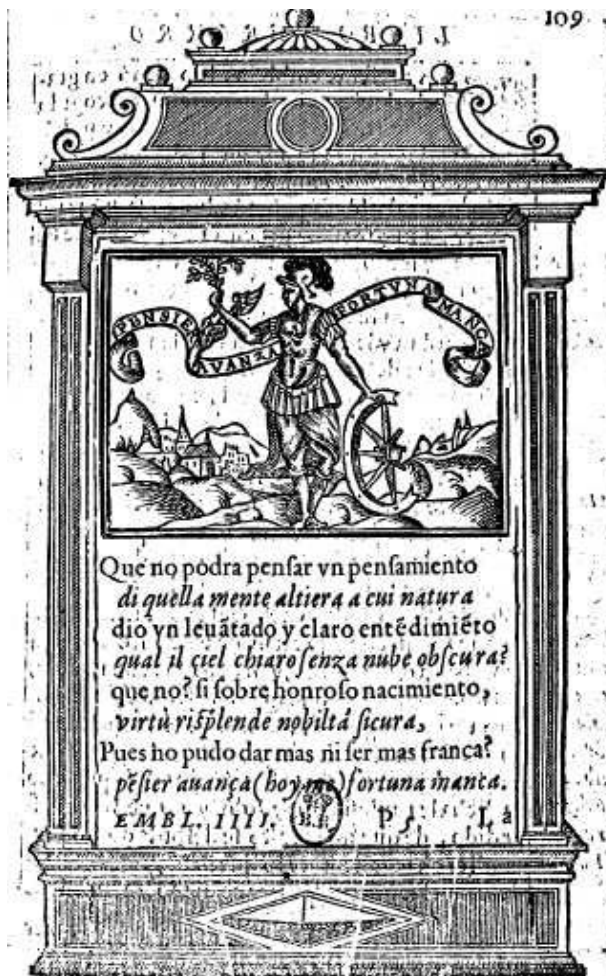 109
PENSIER AVANZA FORTVNA MANCA
Que no podra penſar vn penſamiento
di quella mente altiera a cui natura
dio vn leuãtado y claro entẽdimiẽto
qual il ciel chiaro ſenza nube obſcura?
que no? ſi ſobre honroſo nacimiento,
virtù riſplende nobiltá ſicura,
Pues ho pudo dar mas ni ſer mas franca?
pẽſier auança (hoy me) fortuna manca.
EMBL. IIII. B.I. P 5 La